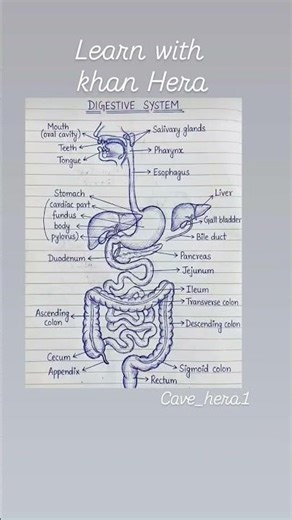 Learn with
khan Hera
DIGESTIVE SYSTEM
Mouth
(oral cavity)
Teeth
Tongue
Salivary glands
Pharynx
Esophagus
Stomach
(cardiac part
fundus
body
pylorus)
Duodenum
Liver
Gall bladder
Bile duct
Pancreas
Jejunum
Ileum
Transverse colon
Ascending
colon
Descending colon
Cecum
Appendix
Sigmoid colon
Rectum
Cave_hera1